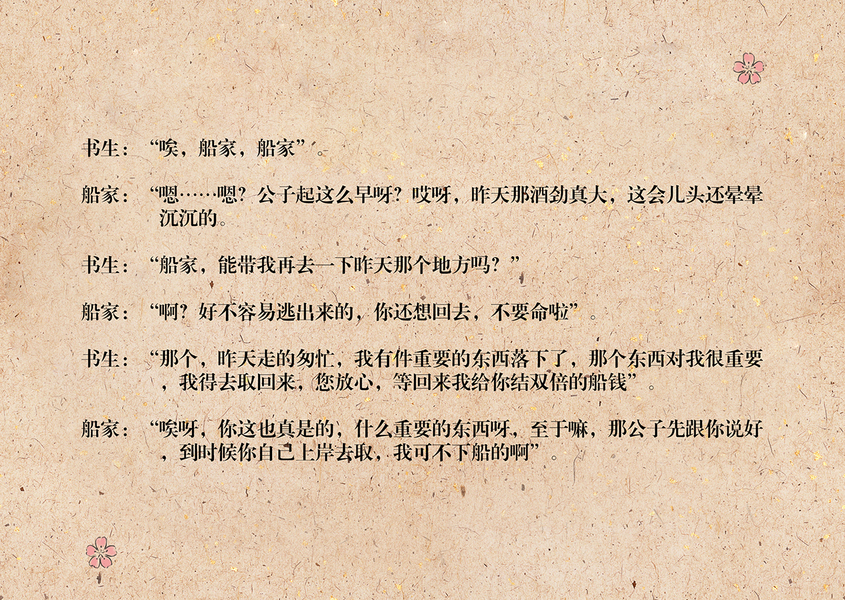 书生：“唉，船家，船家”。
船家：“嗯……嗯？公子起这么早呀？哎呀，昨天那酒劲真大，这会儿头还晕晕
沉沉的。
书生：“船家，能带我再去一下昨天那个地方吗？”
船家：“啊？好不容易逃出来的，你还想回去，不要命啦”。
书生：“那个，昨天走的匆忙，我有件重要的东西落下了，那个东西对我很重要
，我得去取回来，您放心，等回来我给你结双倍的船钱”。
船家：“唉呀，你这也真是的，什么重要的东西呀，至于嘛，那公子先跟你说好
，到时候你自己上岸去取，我可不下船的啊”。